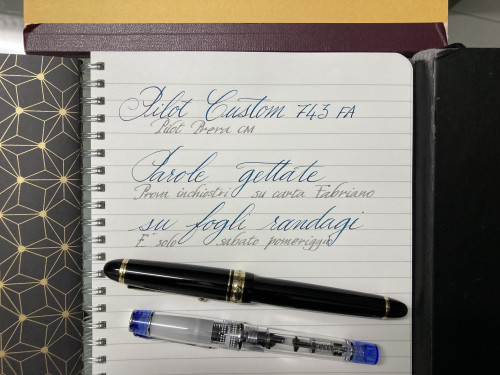 Pilot Custom 743 FA
Pilot Prera CM
Parole gettate
Prova inchiostri su carta Fabriano
su fogli randagi
E' solo sabato pomeriggio